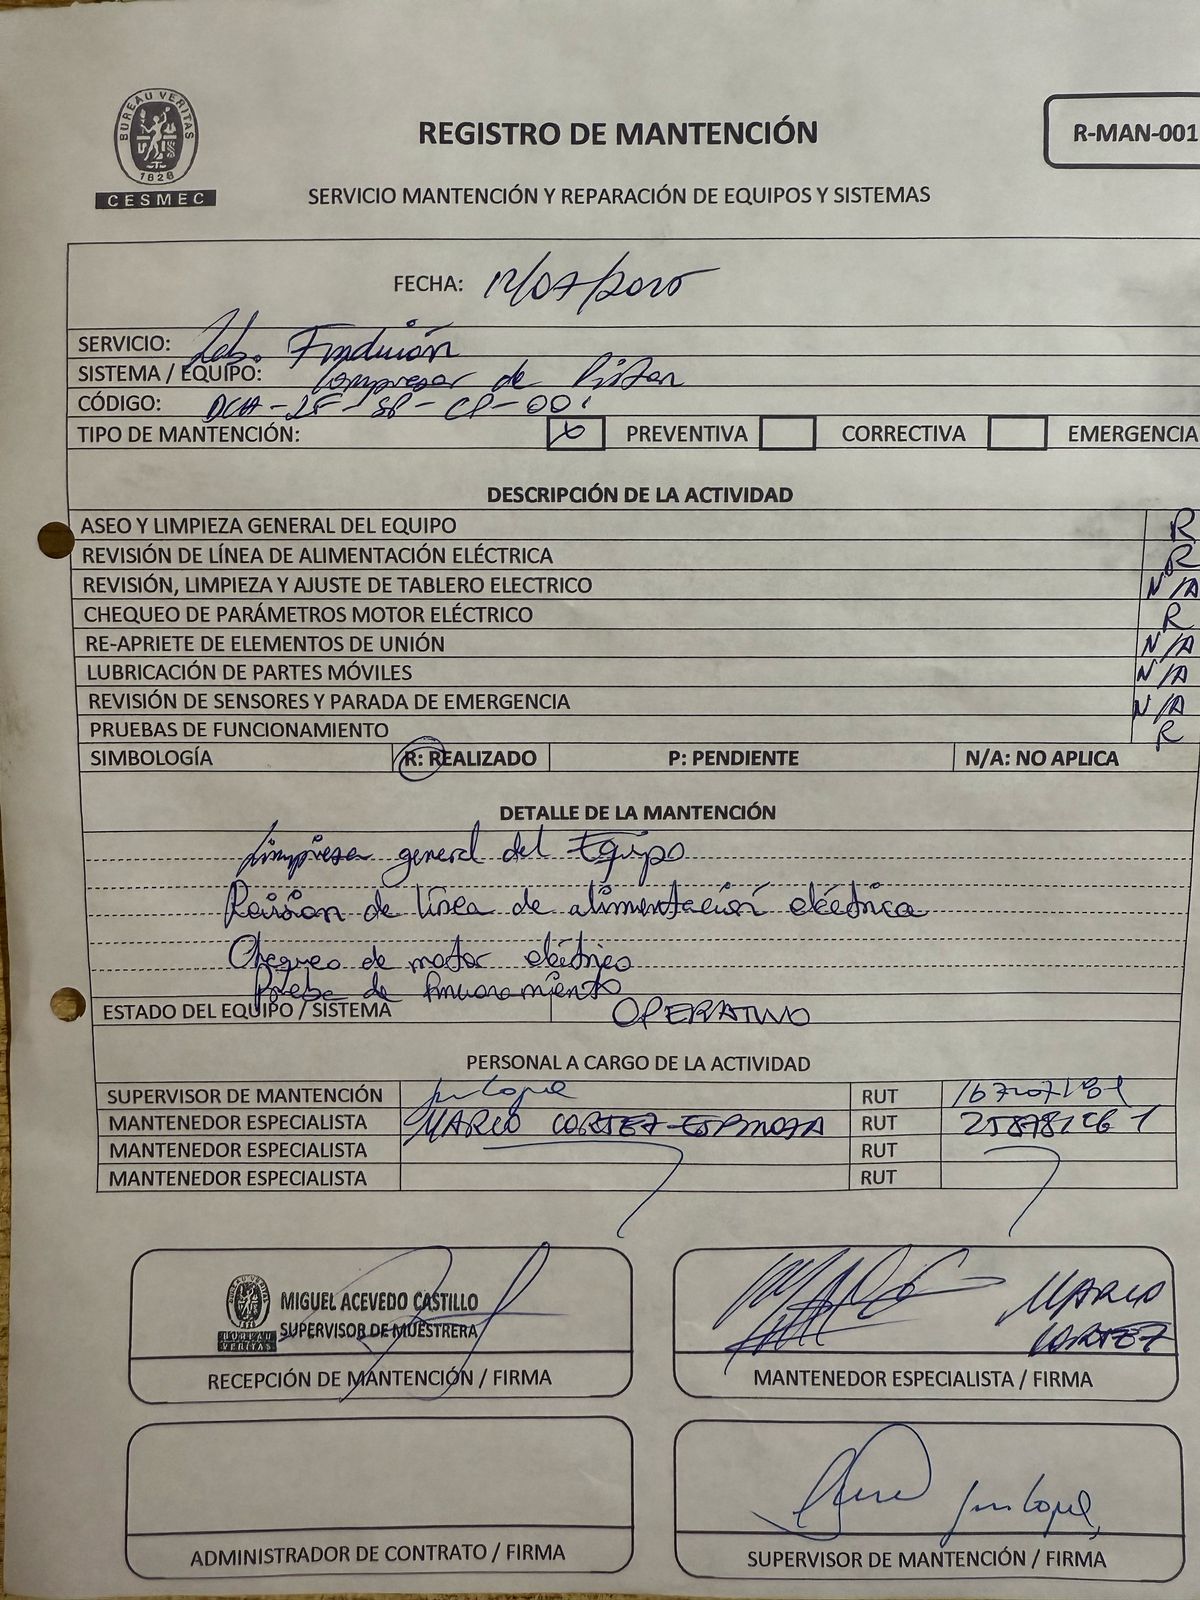 BUREAU VERITAS
1828
CESMEC
REGISTRO DE MANTENCIÓN
R-MAN-001
SERVICIO MANTENCIÓN Y REPARACIÓN DE EQUIPOS Y SISTEMAS
FECHA: 12/07/2025
SERVICIO: Lab. Fundición
SISTEMA / EQUIPO: Compresor de Piston
CÓDIGO: DCH-25-SP-CP-001
TIPO DE MANTENCIÓN: X PREVENTIVA CORRECTIVA EMERGENCIA
DESCRIPCIÓN DE LA ACTIVIDAD
ASEO Y LIMPIEZA GENERAL DEL EQUIPO R
REVISIÓN DE LÍNEA DE ALIMENTACIÓN ELÉCTRICA R
REVISIÓN, LIMPIEZA Y AJUSTE DE TABLERO ELECTRICO N/A
CHEQUEO DE PARÁMETROS MOTOR ELÉCTRICO R
RE-APRIETE DE ELEMENTOS DE UNIÓN N/A
LUBRICACIÓN DE PARTES MÓVILES N/A
REVISIÓN DE SENSORES Y PARADA DE EMERGENCIA N/A
PRUEBAS DE FUNCIONAMIENTO R
SIMBOLOGÍA R: REALIZADO P: PENDIENTE N/A: NO APLICA
DETALLE DE LA MANTENCIÓN
Limpiesa general del Equipo
Revision de línea de alimentación eléctrica
Chequeo de motor eléctrico
Prueba de funcionamiento
ESTADO DEL EQUIPO / SISTEMA OPERATIVO
PERSONAL A CARGO DE LA ACTIVIDAD
SUPERVISOR DE MANTENCIÓN RUT
MANTENEDOR ESPECIALISTA MARIO CORTEZ ESPINOZA RUT
MANTENEDOR ESPECIALISTA RUT
MANTENEDOR ESPECIALISTA RUT
BUREAU VERITAS
MIGUEL ACEVEDO CASTILLO
SUPERVISOR DE MUESTRERA
RECEPCIÓN DE MANTENCIÓN / FIRMA
MARIO
CORTEZ
MANTENEDOR ESPECIALISTA / FIRMA
ADMINISTRADOR DE CONTRATO / FIRMA
SUPERVISOR DE MANTENCIÓN / FIRMA